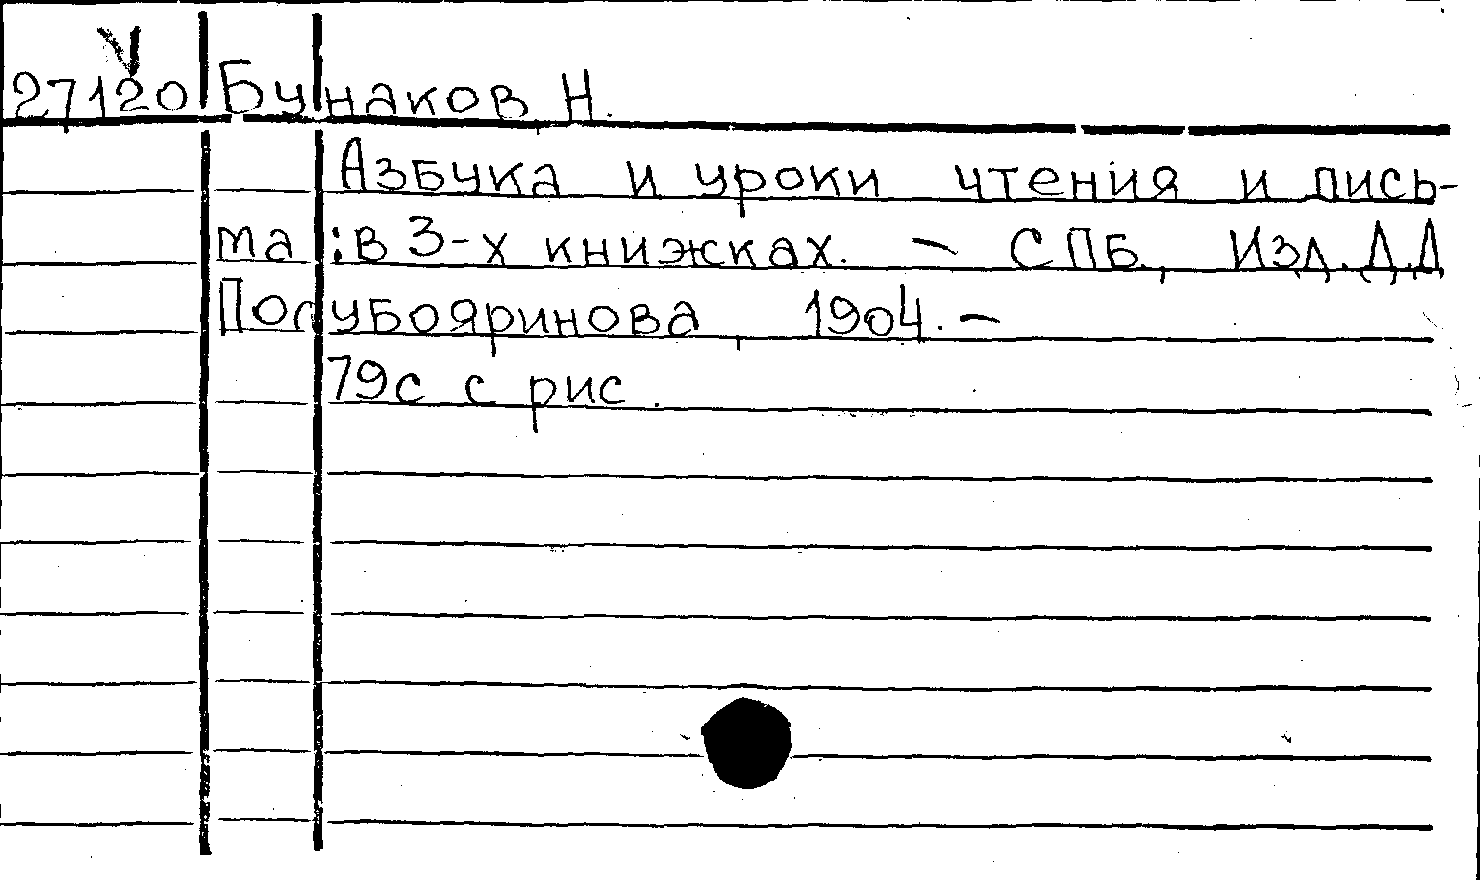 V
27120 Бунаков, Н.
Азбука и уроки чтения и пись-
ма : в 3-х книжках. - СПБ., Изд. Д.Д
Полубояринова, 1904. -
79с с рис.